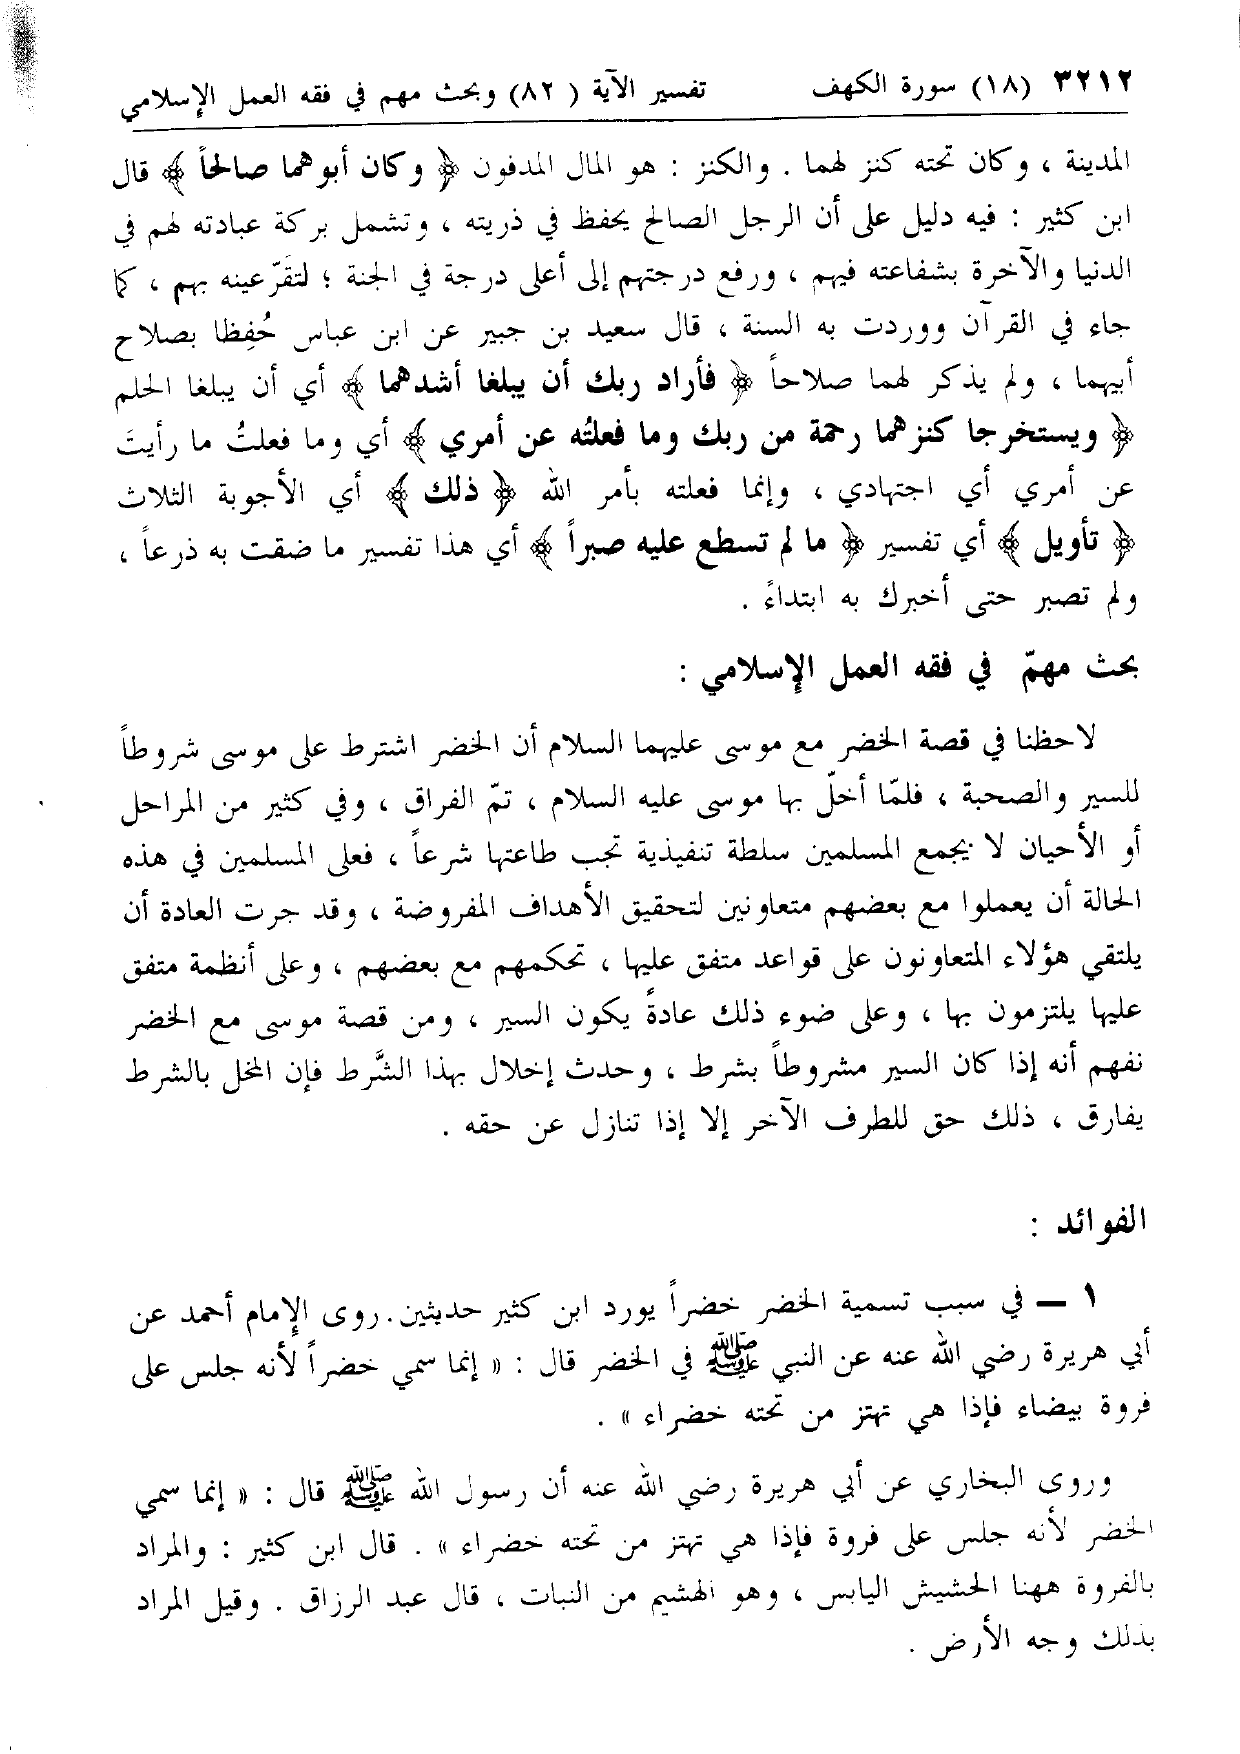 ٣٢١٢ (١٨) سورة الكهف تفسير الآية ( ٨٢) وبحث مهم في فقه العمل الإسلامي
المدينة ، وكان تحته كنز لهما . والكنز : هو المال المدفون ﴿ وكان أبوهما صالحاً ﴾ قال
ابن كثير : فيه دليل على أن الرجل الصالح يحفظ في ذريته ، وتشمل بركة عبادته لهم في
الدنيا والآخرة بشفاعته فيهم ، ورفع درجتهم إلى أعلى درجة في الجنة ؛ لتقَرّ عينه بهم ، كما
جاء في القرآن ووردت به السنة ، قال سعيد بن جبير عن ابن عباس حُفِظا بصلاح
أبيهما ، ولم يذكر لهما صلاحاً ﴿ فأراد ربك أن يبلغا أشدهما ﴾ أي أن يبلغا الحلم
﴿ ويستخرجا كنزهما رحمة من ربك وما فعلتُه عن أمري ﴾ أي وما فعلتُ ما رأيتَ
عن أمري أي اجتهادي ، وإنما فعلته بأمر الله ﴿ ذلك ﴾ أي الأجوبة الثلاث
﴿ تأويل ﴾ أي تفسير ﴿ ما لم تسطع عليه صبراً ﴾ أي هذا تفسير ما ضقت به ذرعاً ،
ولم تصبر حتى أخبرك به ابتداءً .
بحث مهمّ في فقه العمل الإسلامي :
لاحظنا في قصة الخضر مع موسى عليهما السلام أن الخضر اشترط على موسى شروطاً
للسير والصحبة ، فلمّا أخلّ بها موسى عليه السلام ، تمّ الفراق ، وفي كثير من المراحل
أو الأحيان لا يجمع المسلمين سلطة تنفيذية تجب طاعتها شرعاً ، فعلى المسلمين في هذه
الحالة أن يعملوا مع بعضهم متعاونين لتحقيق الأهداف المفروضة ، وقد جرت العادة أن
يلتقي هؤلاء المتعاونون على قواعد متفق عليها ، تحكمهم مع بعضهم ، وعلى أنظمة متفق
عليها يلتزمون بها ، وعلى ضوء ذلك عادةً يكون السير ، ومن قصة موسى مع الخضر
نفهم أنه إذا كان السير مشروطاً بشرط ، وحدث إخلال بهذا الشَّرط فإن المخل بالشرط
يفارق ، ذلك حق للطرف الآخر إلا إذا تنازل عن حقه .
الفوائد :
١ ــ في سبب تسمية الخضر خضراً يورد ابن كثير حديثين. روى الإمام أحمد عن
أبي هريرة رضي الله عنه عن النبي ﷺ في الخضر قال : « إنما سمي خضراً لأنه جلس على
فروة بيضاء فإذا هي تهتز من تحته خضراء » .
وروى البخاري عن أبي هريرة رضي الله عنه أن رسول الله ﷺ قال : « إنما سمي
الخضر لأنه جلس على فروة فإذا هي تهتز من تحته خضراء » . قال ابن كثير : والمراد
بالفروة ههنا الحشيش اليابس ، وهو الهشيم من النبات ، قال عبد الرزاق . وقيل المراد
بذلك وجه الأرض .